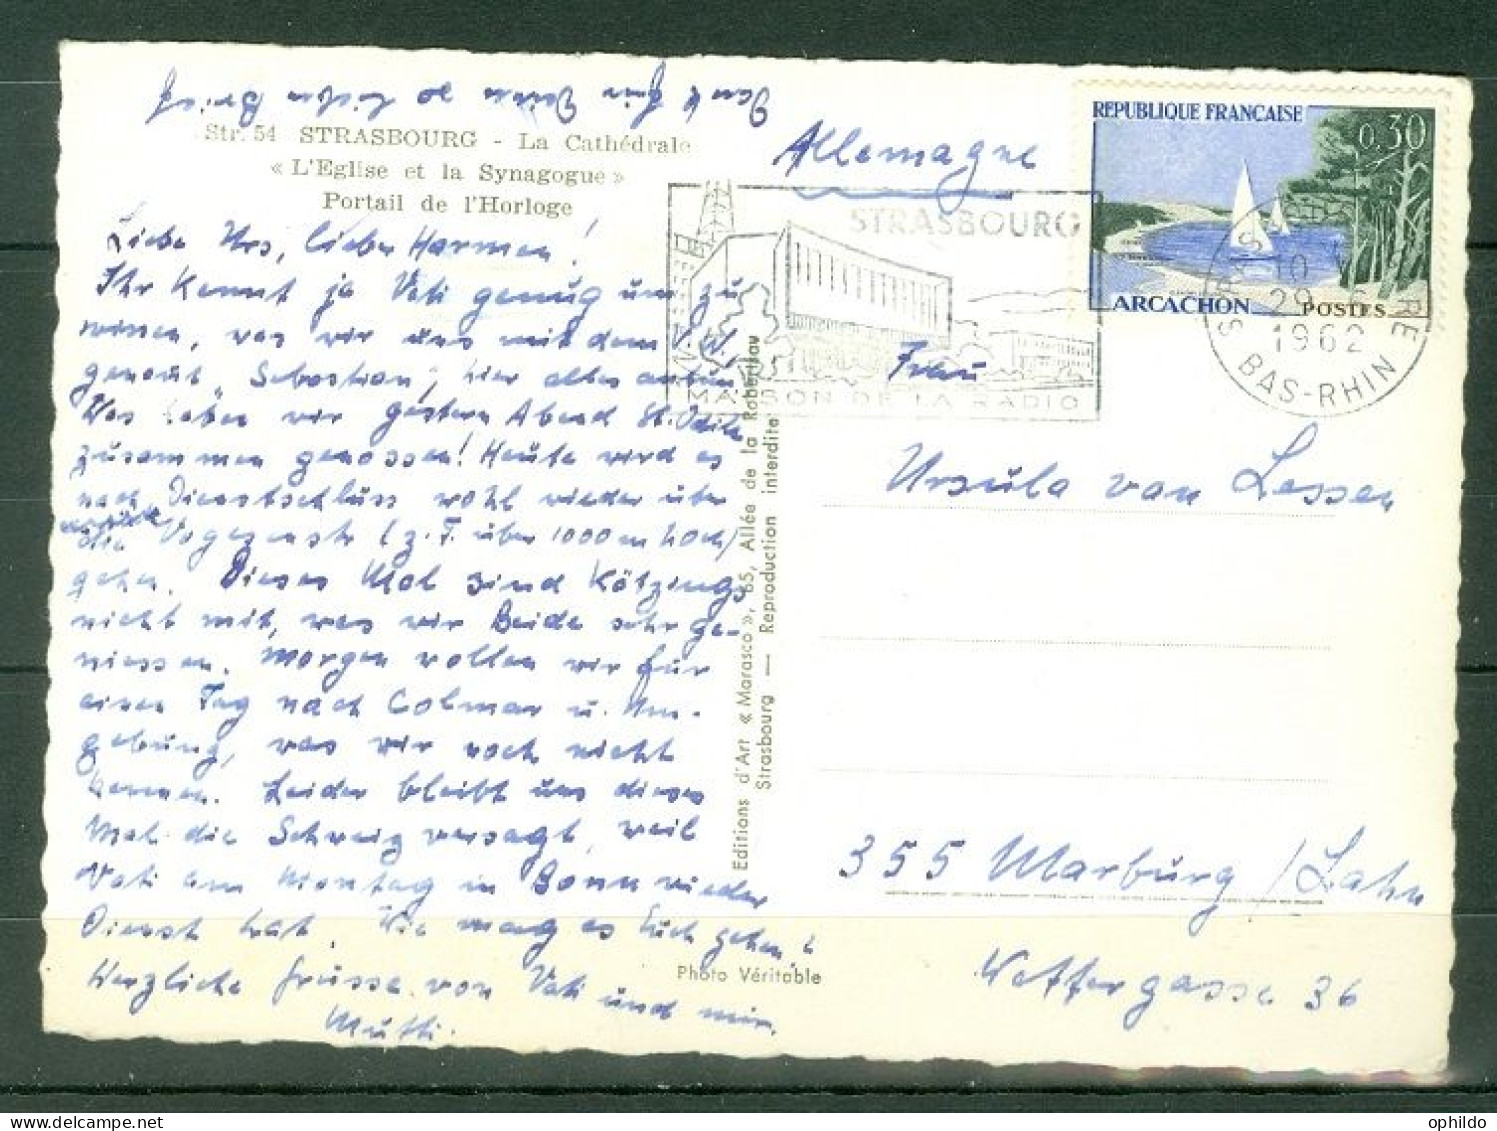 Dank für Deinen so lieben Brief
Str. 54 STRASBOURG - La Cathédrale
« L'Eglise et la Synagogue »
Portail de l'Horloge
Liebe Urs, lieber Harmen!
Ihr kennt ja Vati genug um zu
wissen, was wir uns mit dem V.W.,
genannt „Sebastian", hier alles antun.
Was haben wir gestern Abend St. Odile
zusammen genossen! Heute wird es
nach Dienstschluss wohl wieder über
die Vogesenstr. (z. T. über 1000 m hoch)
zurück
gehen. Dieses Mal sind Kötzings
nicht mit, was wir Beide sehr ge-
niessen. Morgen wollen wir für
einen Tag nach Colmar u. Um-
gebung, was wir noch nicht
kennen. Leider bleibt uns dieses
Mal die Schweiz versagt, weil
Vati am Montag in Bonn wieder
Dienst hat. Wie mag es Euch gehen?
Herzliche Grüsse von Vati und mir.
Mutti.
Editions d'Art « Marasco », 65, Allée de la Robertsau
Strasbourg — Reproduction interdite
Photo Véritable
Allemagne
REPUBLIQUE FRANÇAISE
0,30
ARCACHON POSTES
STRASBOURG
MAISON DE LA RADIO
STRASBOURG RE
10
29
1962
BAS-RHIN
Frau
Ursula van Lessen
355 Marburg / Lahn
Wettergasse 36